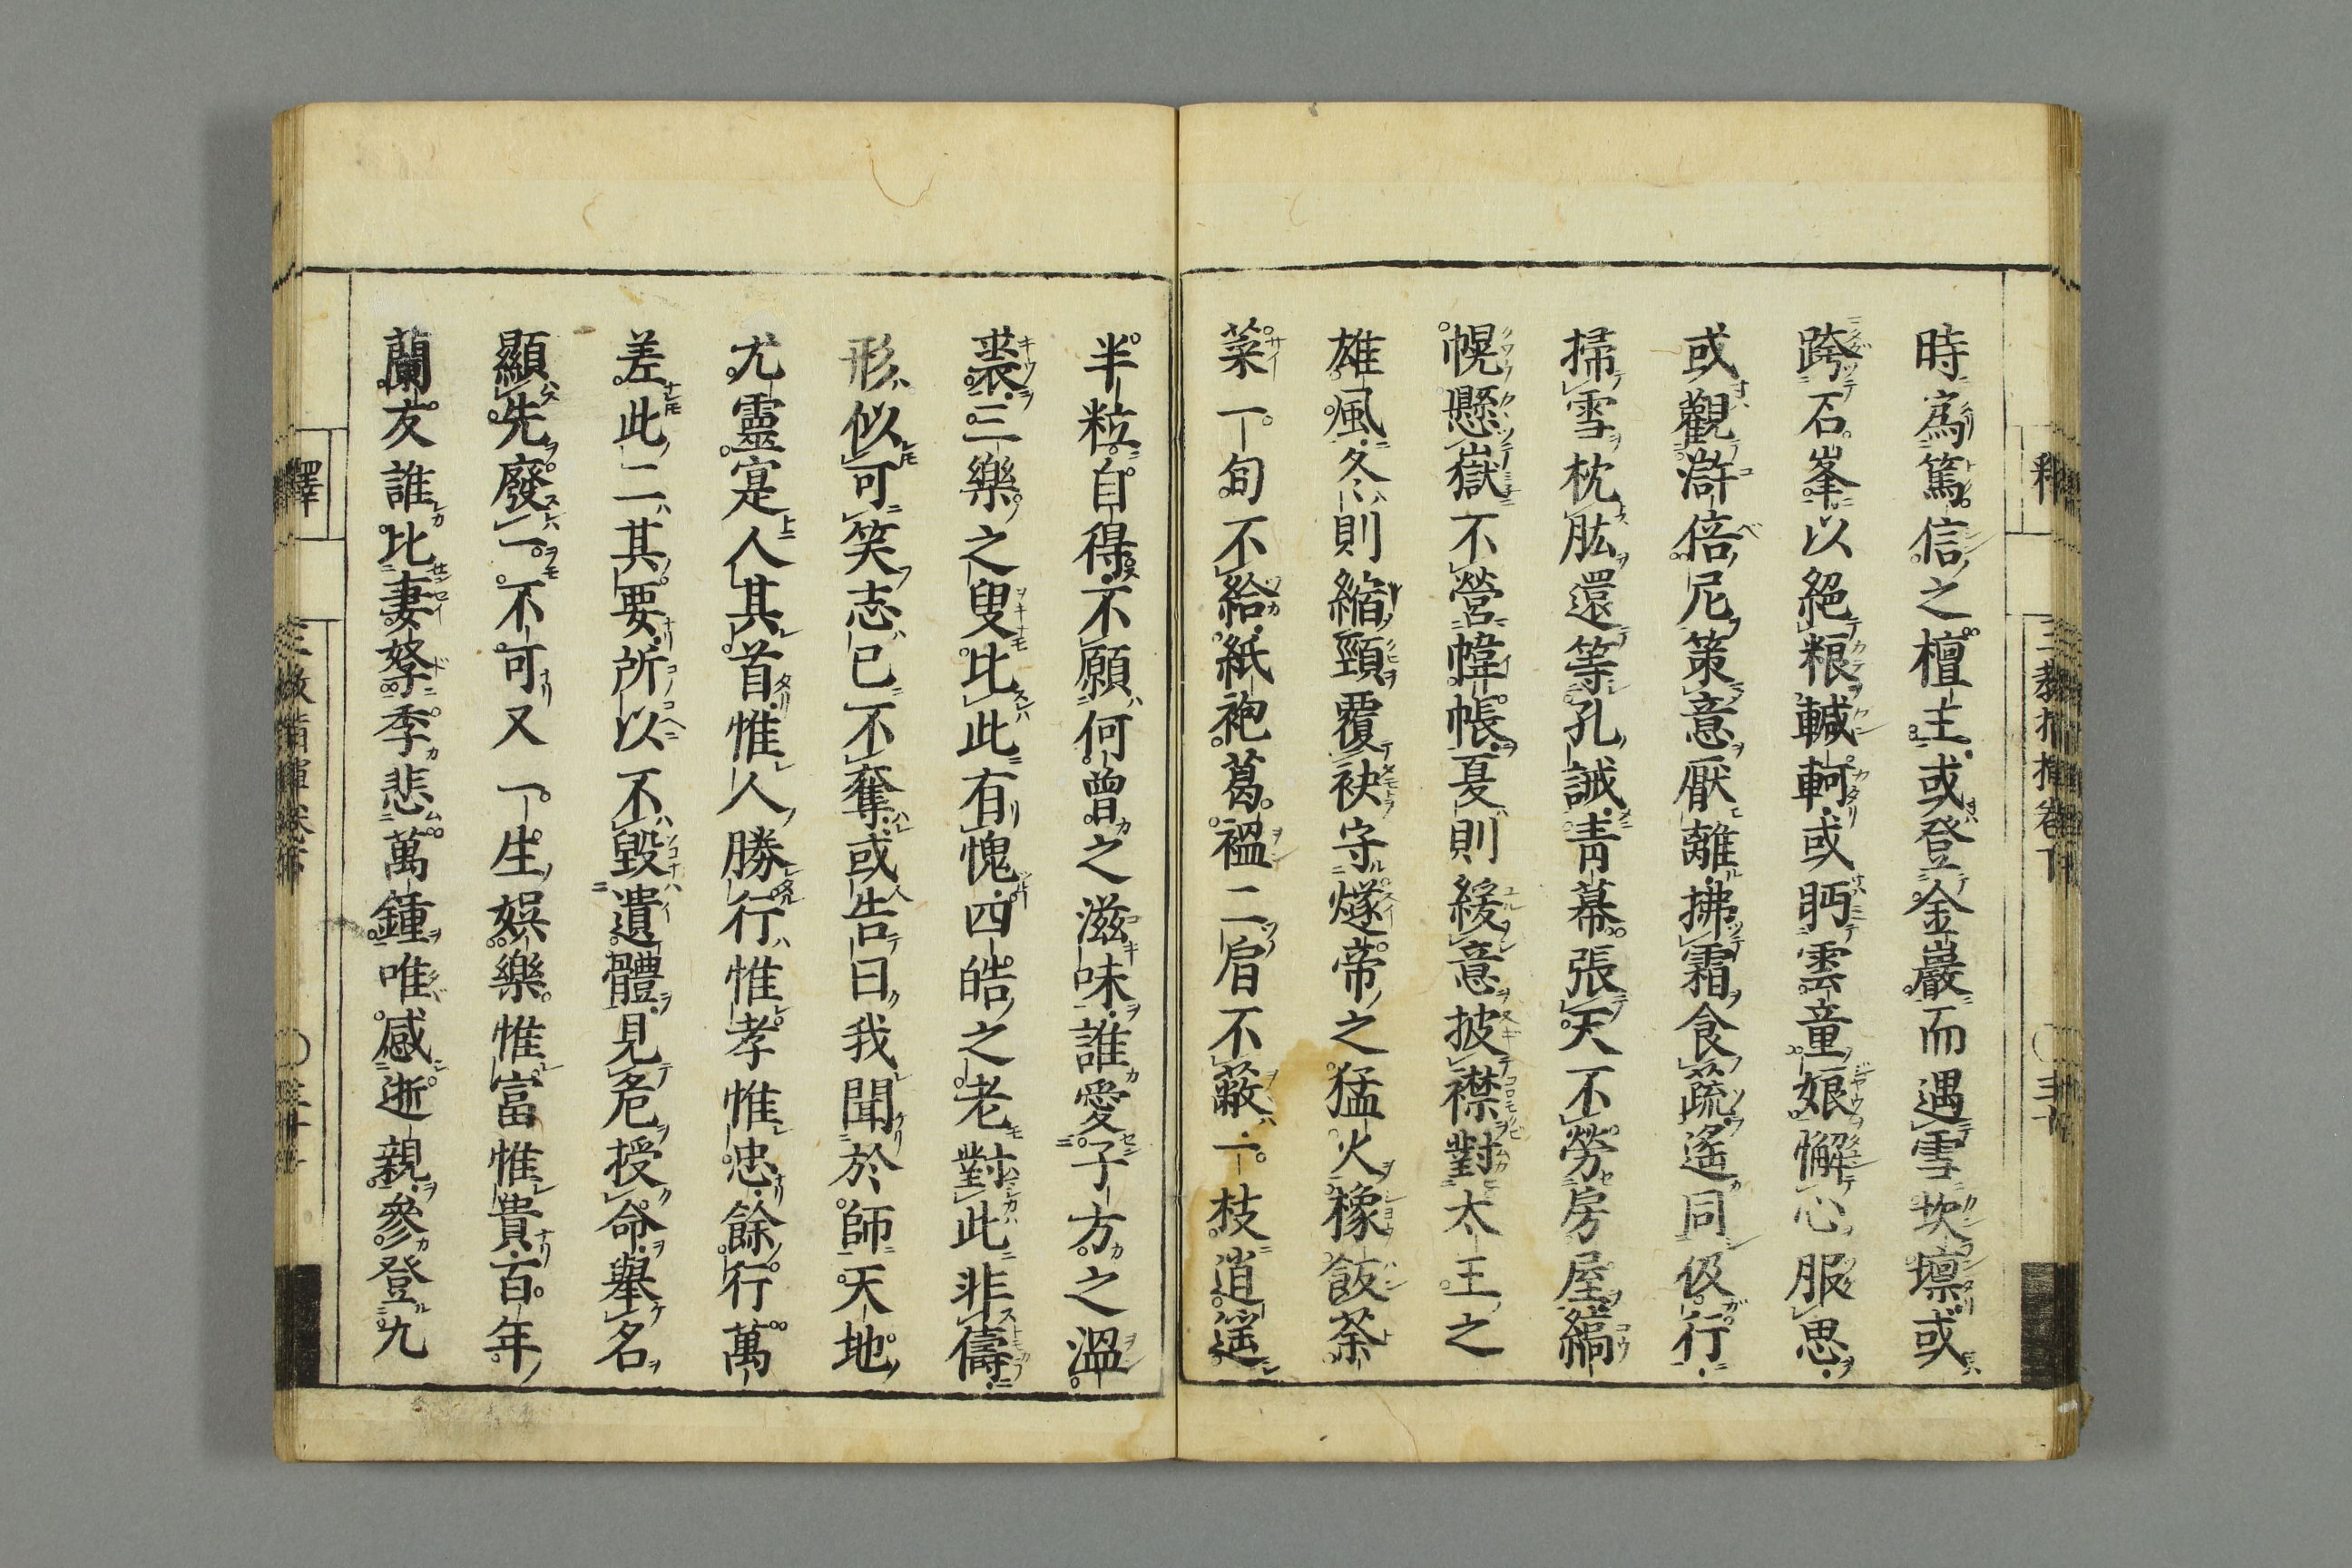 時爲篤信之檀主或登金巖而遇雪坎壈或
跨石峯以絕粮轗軻或眄雲童娘懈心服思
或觀滸倍尼策意厭離拂霜食蔬遙同伋行
掃雪枕肱還等孔誡靑幕張天不勞房屋縞
幌懸嶽不營幃帳夏則緩意披襟對太王之
雄風冬則縮頸覆袂守燧帝之猛火橡飯荼
菜一旬不給紙袍葛褞二肩不蔽一枝逍遥
半粒自得不願何曾之滋味誰愛子方之溫
裘三樂之叟比此有愧四皓之老對此非儔
形似可笑志已不奪或告曰我聞於師天地
尤靈寔人其首惟人勝行惟孝惟忠餘行萬
差此二其要所以不毀遺體見危授命舉名
顯先廢一不可又一生娯樂惟富惟貴百年
蘭友誰比妻孥季悲萬鍾唯感逝親參登九
釋
三教指揮卷下